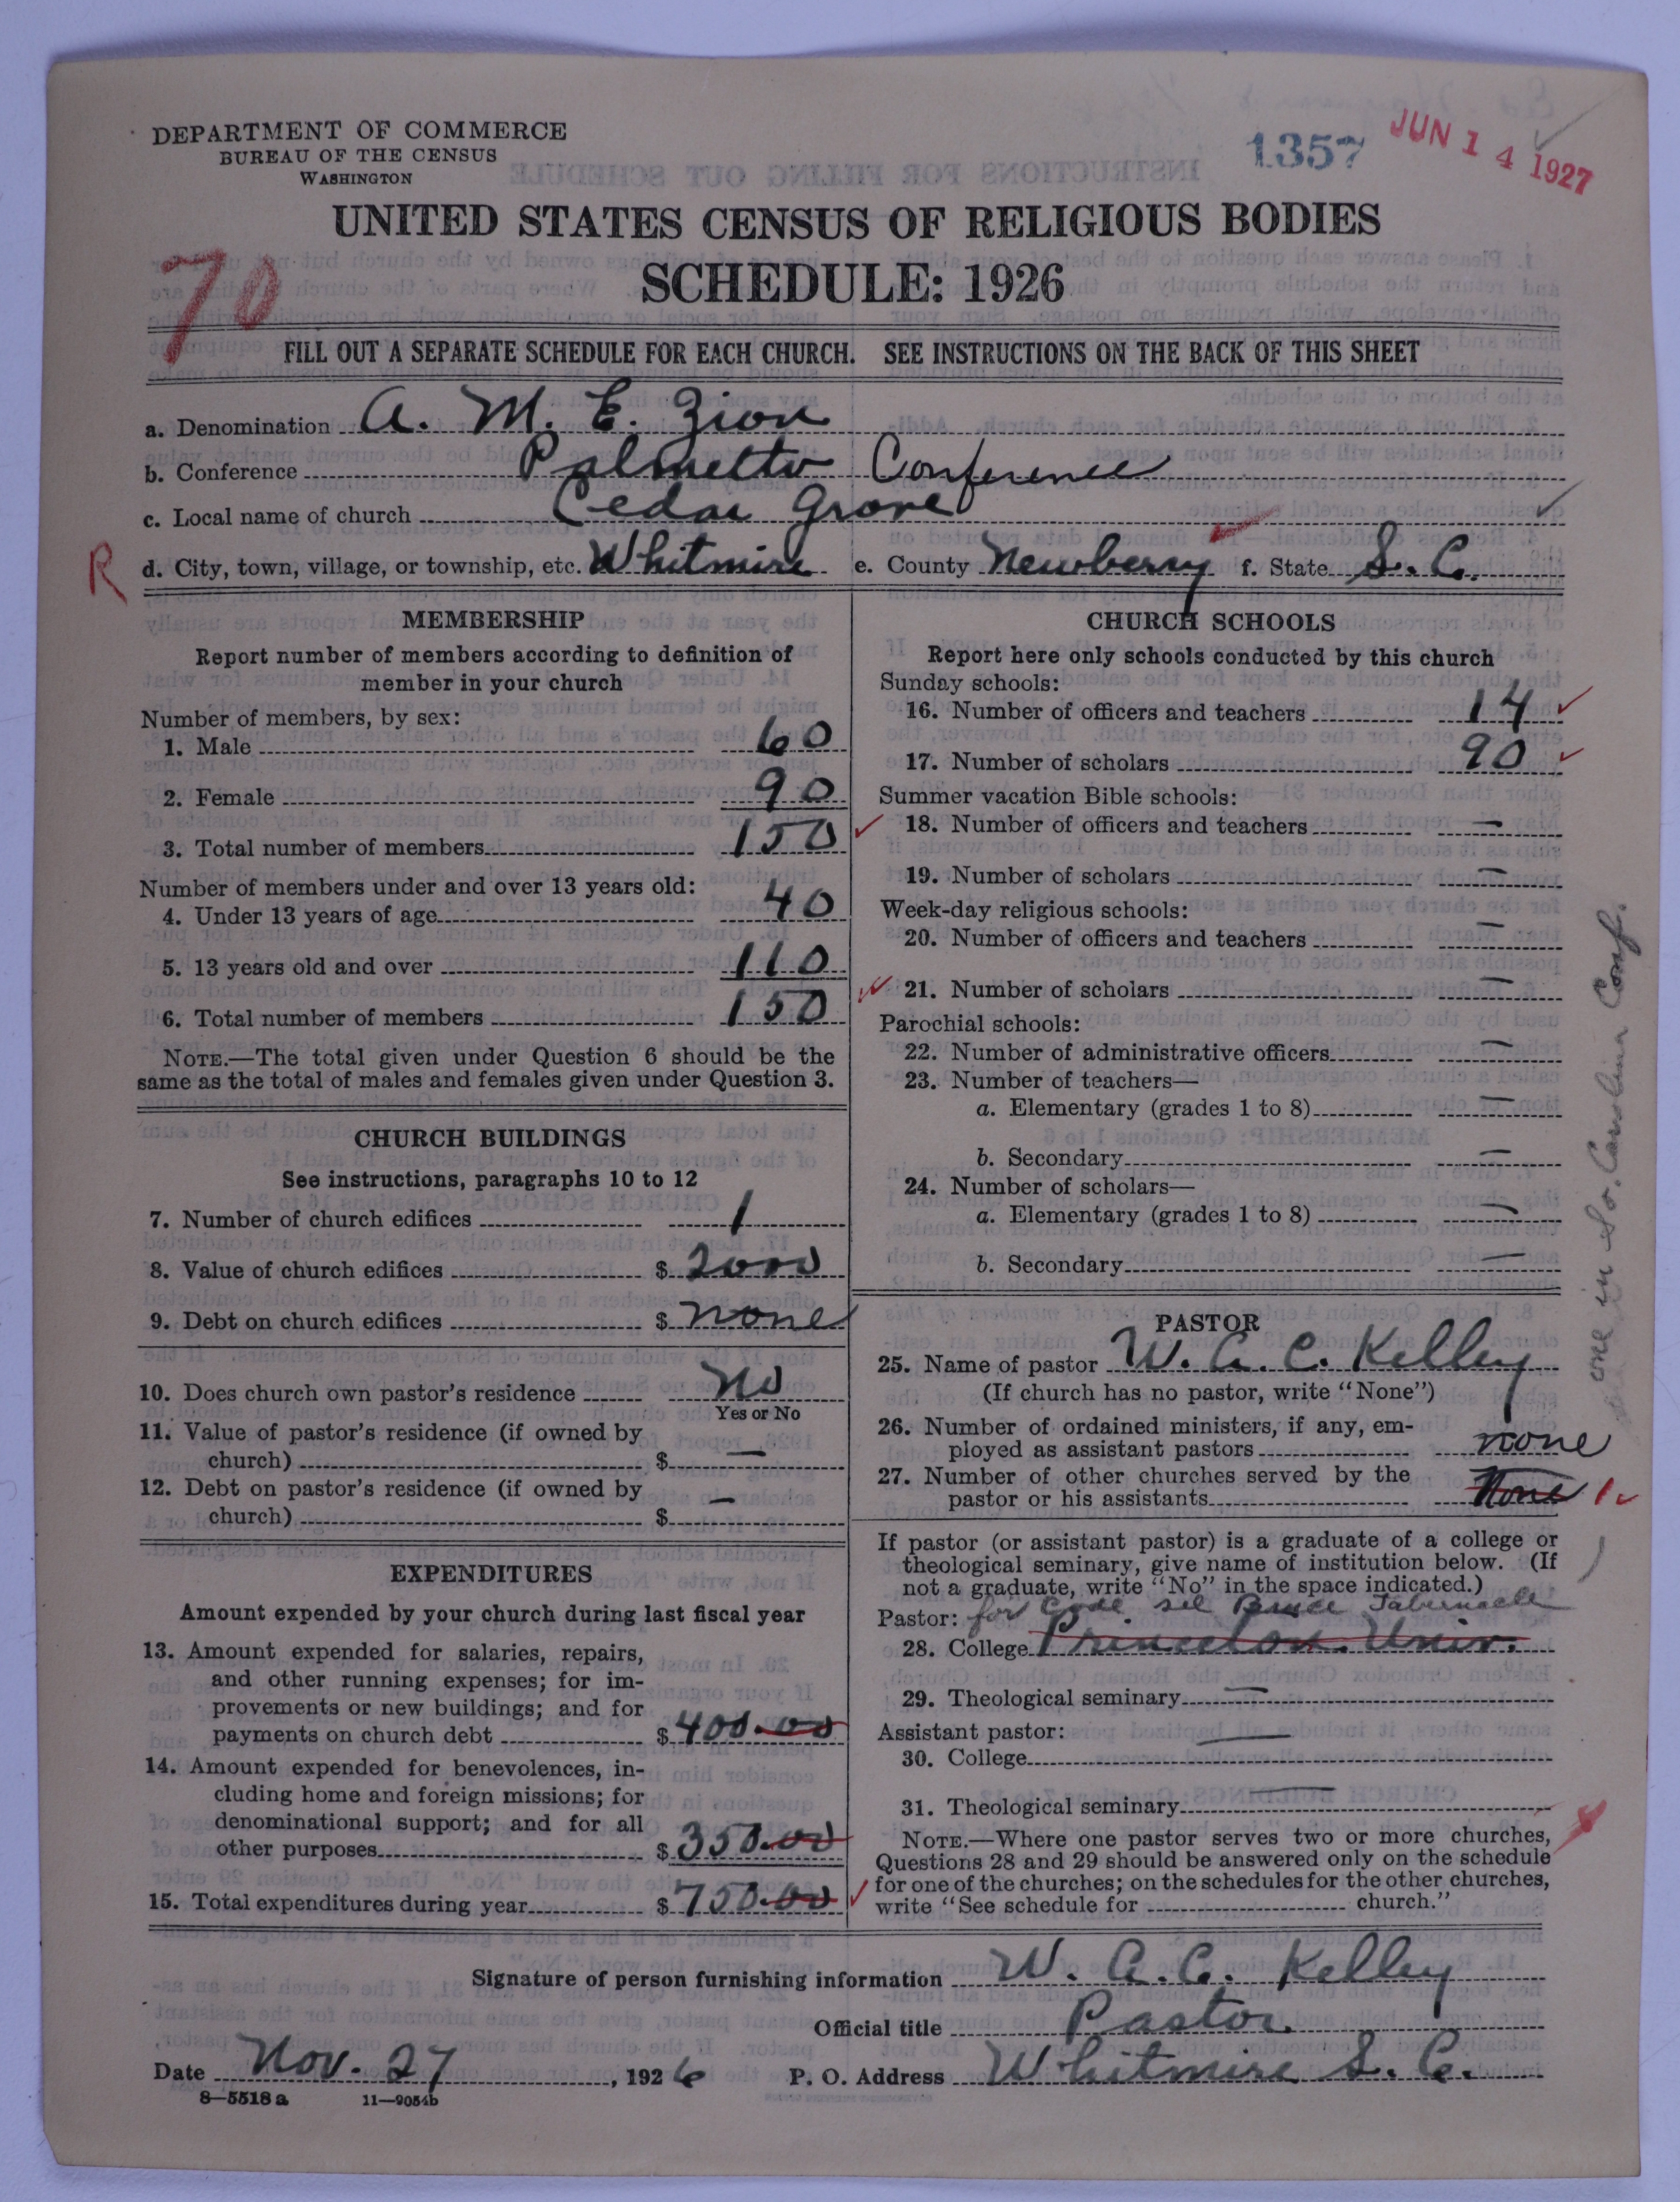 DEPARTMENT OF COMMERCE
BUREAU OF THE CENSUS
WASHINGTON
1357
JUN 14 1927
UNITED STATES CENSUS OF RELIGIOUS BODIES
SCHEDULE: 1926
70
FILL OUT A SEPARATE SCHEDULE FOR EACH CHURCH. SEE INSTRUCTIONS ON THE BACK OF THIS SHEET
a. Denomination A. M. E. Zion
b. Conference Palmetto Conference
c. Local name of church Cedar Grove
R d. City, town, village, or township, etc. Whitmire e. County Newberry f. State S. C.
MEMBERSHIP
Report number of members according to definition of
member in your church
Number of members, by sex:
1. Male 60
2. Female 90
3. Total number of members 150
Number of members under and over 13 years old:
4. Under 13 years of age 40
5. 13 years old and over 110
6. Total number of members 150
NOTE.—The total given under Question 6 should be the
same as the total of males and females given under Question 3.
CHURCH BUILDINGS
See instructions, paragraphs 10 to 12
7. Number of church edifices 1
8. Value of church edifices $ 2000
9. Debt on church edifices $ none
10. Does church own pastor's residence No
Yes or No
11. Value of pastor's residence (if owned by
church) $ —
12. Debt on pastor's residence (if owned by
church) $ —
EXPENDITURES
Amount expended by your church during last fiscal year
13. Amount expended for salaries, repairs,
and other running expenses; for im-
provements or new buildings; and for
payments on church debt $ 400.00
14. Amount expended for benevolences, in-
cluding home and foreign missions; for
denominational support; and for all
other purposes $ 350.00
15. Total expenditures during year $ 750.00
CHURCH SCHOOLS
Report here only schools conducted by this church
Sunday schools:
16. Number of officers and teachers 14
17. Number of scholars 90
Summer vacation Bible schools:
18. Number of officers and teachers —
19. Number of scholars —
Week-day religious schools:
20. Number of officers and teachers —
21. Number of scholars —
Parochial schools:
22. Number of administrative officers —
23. Number of teachers—
a. Elementary (grades 1 to 8) —
b. Secondary —
24. Number of scholars—
a. Elementary (grades 1 to 8) —
b. Secondary —
PASTOR
25. Name of pastor W. A. C. Kelley
(If church has no pastor, write "None")
26. Number of ordained ministers, if any, em-
ployed as assistant pastors none
27. Number of other churches served by the
pastor or his assistants None 1
If pastor (or assistant pastor) is a graduate of a college or
theological seminary, give name of institution below. (If
not a graduate, write "No" in the space indicated.)
Pastor: for Code see Bruce Tabernacle
28. College Princeton Univ.
29. Theological seminary —
Assistant pastor: —
30. College
31. Theological seminary —
NOTE.—Where one pastor serves two or more churches,
Questions 28 and 29 should be answered only on the schedule
for one of the churches; on the schedules for the other churches,
write "See schedule for church."
one in So. Carolina Conf.
Signature of person furnishing information W. A. C. Kelley
Official title Pastor
Date Nov. 27, 1926 P. O. Address Whitmire S. C.
8—5518a 11—9054b